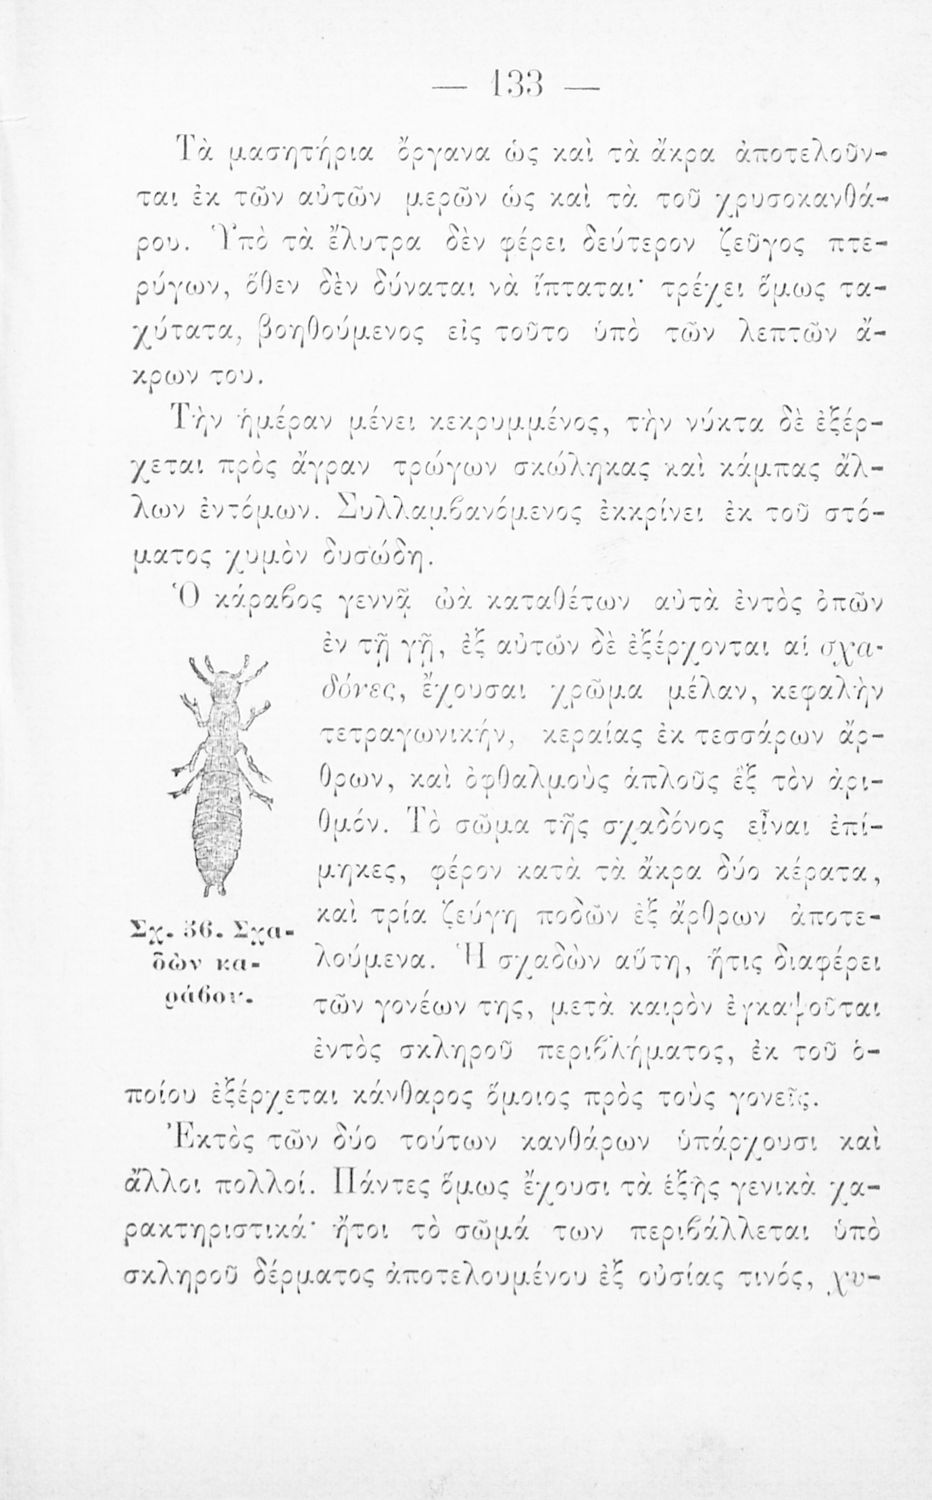 — 133 —
Τὰ μασητήρια ὄργανα ὡς καὶ τὰ ἄκρα ἀποτελοῦν-
ται ἐκ τῶν αὐτῶν μερῶν ὡς καὶ τὰ τοῦ χρυσοκανθά-
ρου. Ὑπὸ τὰ ἔλυτρα δὲν φέρει δεύτερον ζεῦγος πτε-
ρύγων, ὅθεν δὲν δύναται νὰ ἵπταται· τρέχει ὅμως τα-
χύτατα, βοηθούμενος εἰς τοῦτο ὑπὸ τῶν λεπτῶν ἄ-
κρων του.
Τὴν ἡμέραν μένει κεκρυμμένος, τὴν νύκτα δὲ ἐξέρ-
χεται πρὸς ἄγραν τρώγων σκώληκας καὶ κάμπας ἄλ-
λων ἐντόμων. Συλλαμβανόμενος ἐκκρίνει ἐκ τοῦ στό-
ματος χυμὸν δυσώδη.
Ὁ κάραβος γεννᾷ ὠὰ καταθέτων αὐτὰ ἐντὸς ὀπῶν
ἐν τῇ γῇ, ἐξ αὐτῶν δὲ ἐξέρχονται αἱ σχα-
δόνες, ἔχουσαι χρῶμα μέλαν, κεφαλὴν
τετραγωνικήν, κεραίας ἐκ τεσσάρων ἄρ-
θρων, καὶ ὀφθαλμοὺς ἁπλοῦς ἓξ τὸν ἀρι-
θμόν. Τὸ σῶμα τῆς σχαδόνος εἶναι ἐπί-
μηκες, φέρον κατὰ τὰ ἄκρα δύο κέρατα,
καὶ τρία ζεύγη ποδῶν ἐξ ἄρθρων ἀποτε-
λούμενα. Ἡ σχαδὼν αὕτη, ἥτις διαφέρει
τῶν γονέων της, μετὰ καιρὸν ἐγκαψοῦται
ἐντὸς σκληροῦ περιβλήματος, ἐκ τοῦ ὁ-
ποίου ἐξέρχεται κάνθαρος ὅμοιος πρὸς τοὺς γονεῖς.
Σχ. 56. Σχα-
δὼν κα-
ράβου.
Ἐκτὸς τῶν δύο τούτων κανθάρων ὑπάρχουσι καὶ
ἄλλοι πολλοί. Πάντες ὅμως ἔχουσι τὰ ἑξῆς γενικὰ χα-
ρακτηριστικά· ἤτοι τὸ σῶμά των περιβάλλεται ὑπὸ
σκληροῦ δέρματος ἀποτελουμένου ἐξ οὐσίας τινός, χυ-